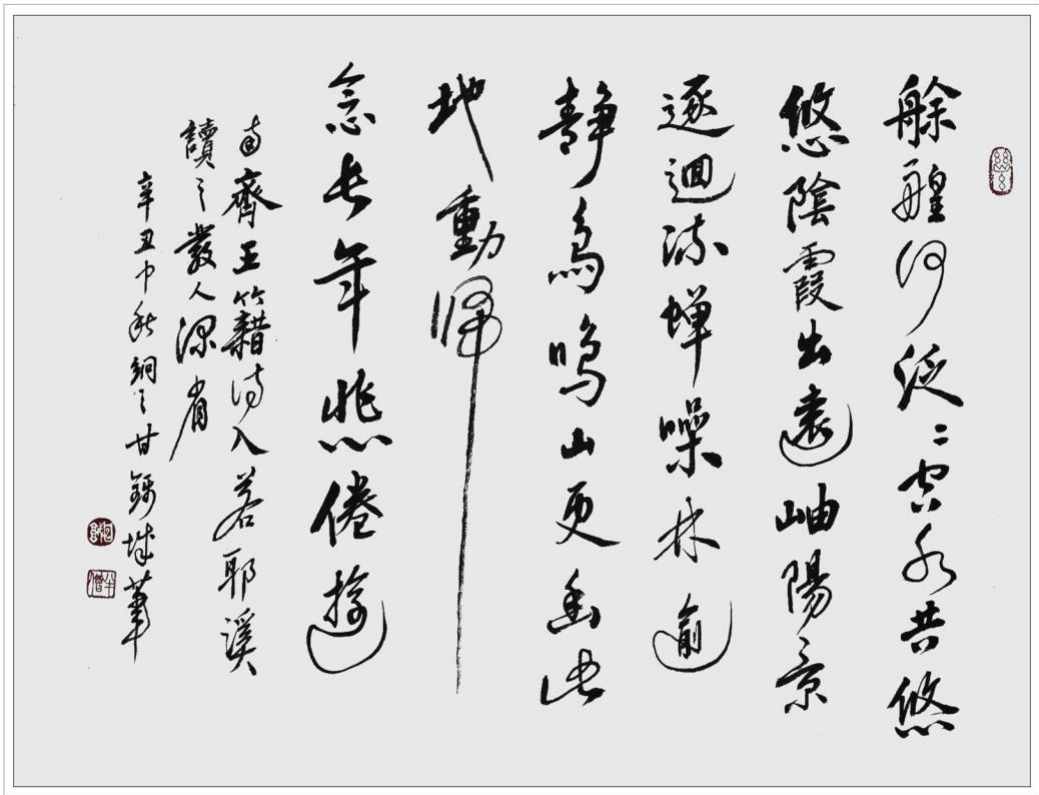 艅艎何泛〻空水共悠
悠陰霞出遠岫陽景
逐迴流蟬噪林逾
靜鳥鳴山更幽此
地動歸
念長年悲倦遊
南齊王籍詩入若耶溪
讀之發人深省
辛丑中秋甘錦城筆